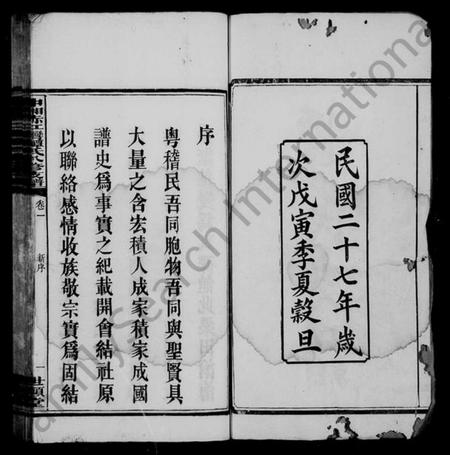 民國二十七年歲
次戊寅季夏穀旦
序
粵稽民吾同胞物吾同與聖賢具
大量之含宏積人成家積家成國
譜史爲事實之紀載開會結社原
以聯絡感情收族敬宗實爲固結
卷一
新序
一
FamilySearch International